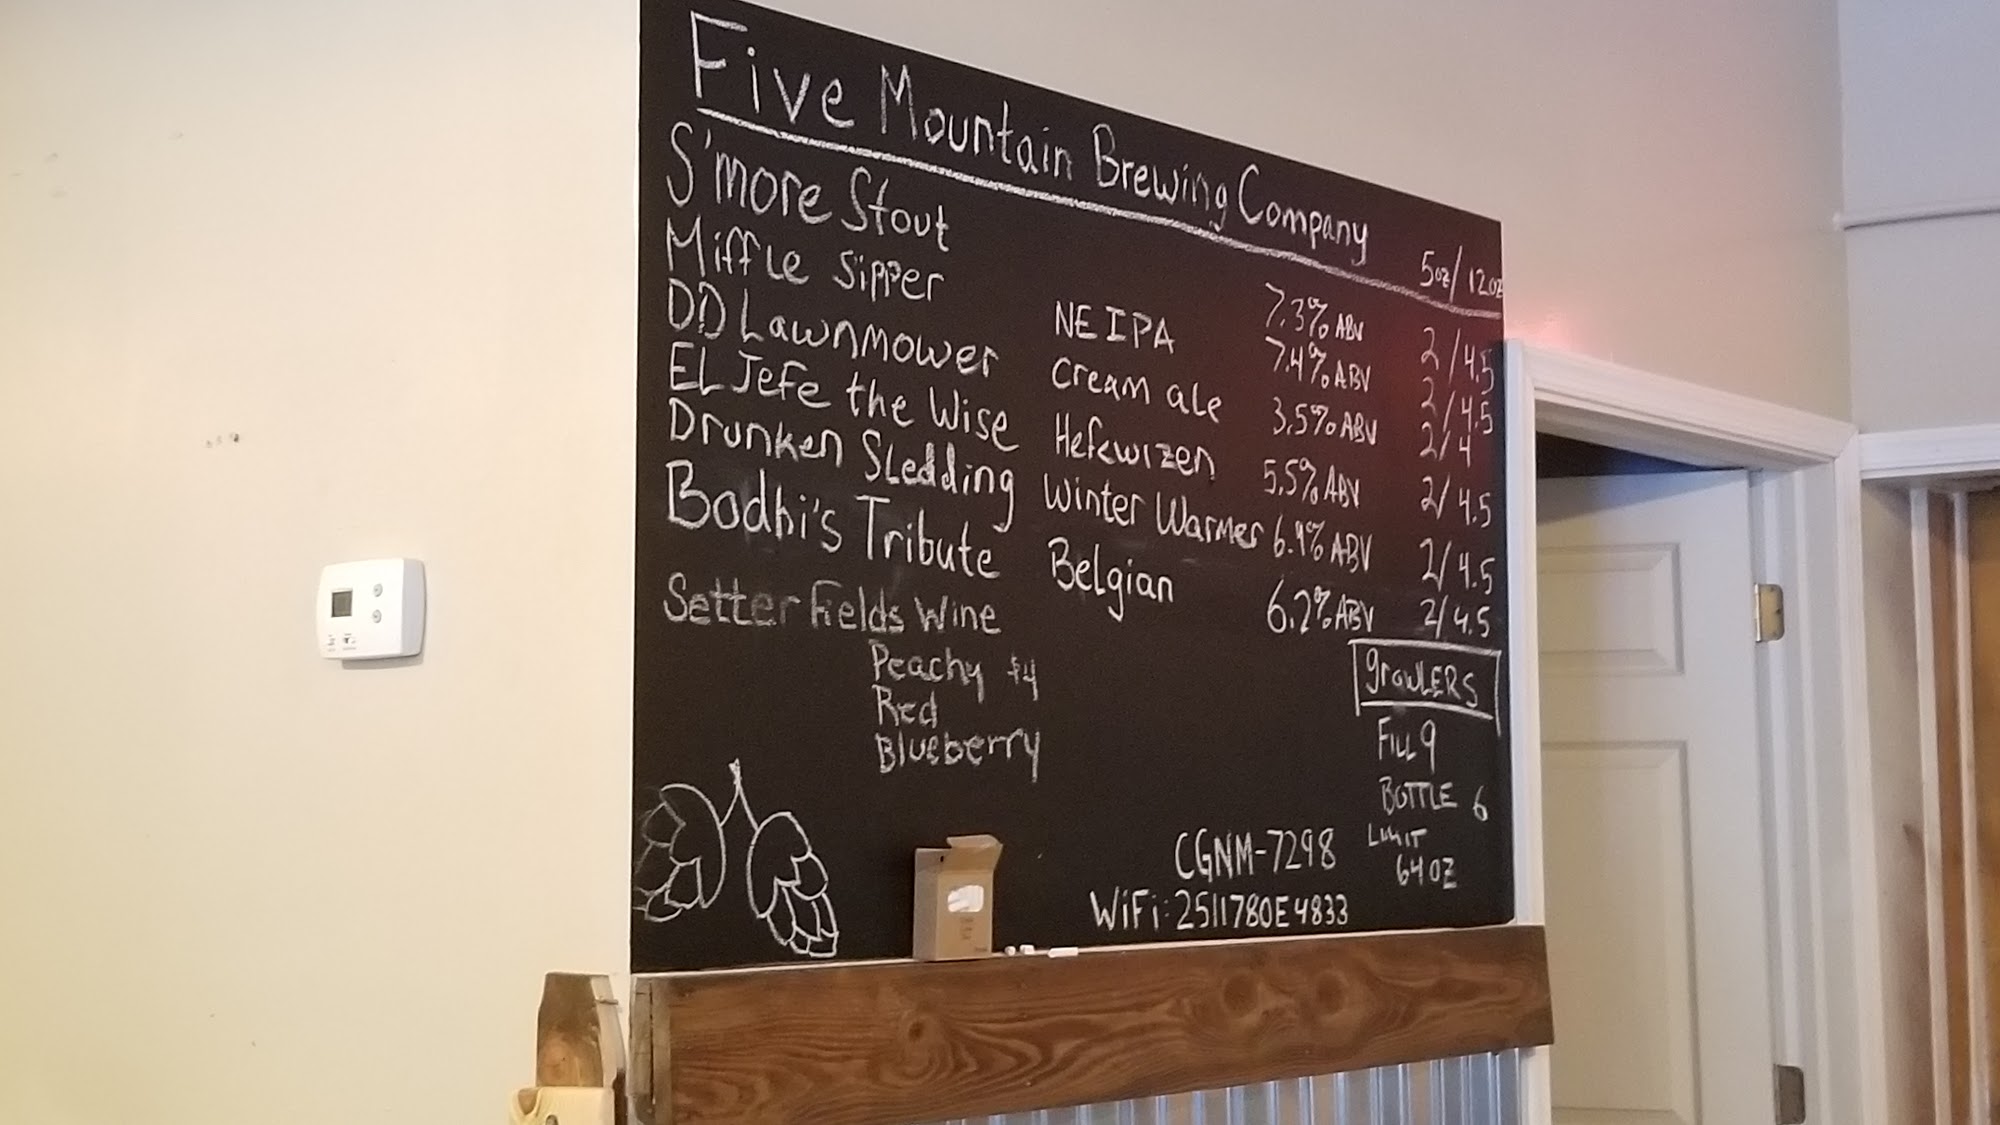 Five Mountain Brewing Company
5oz/12oz
S'more Stout 7.3% ABV 2/4.5
Miffle Sipper NEIPA 7.4% ABV 2/4.5
DD Lawnmower Cream ale 3.5% ABV 2/4
EL Jefe the Wise Hefewizen 5.5% ABV 2/4.5
Drunken Sledding Winter Warmer 6.9% ABV 2/4.5
Bodhi's Tribute Belgian 6.2% ABV 2/4.5
Setter Fields Wine
Peachy $4
Red
Blueberry
growLERS
FiLL 9
BOTTLE 6
LIMIT
64 OZ
CGNM-7298
WiFi: 2511780E4833